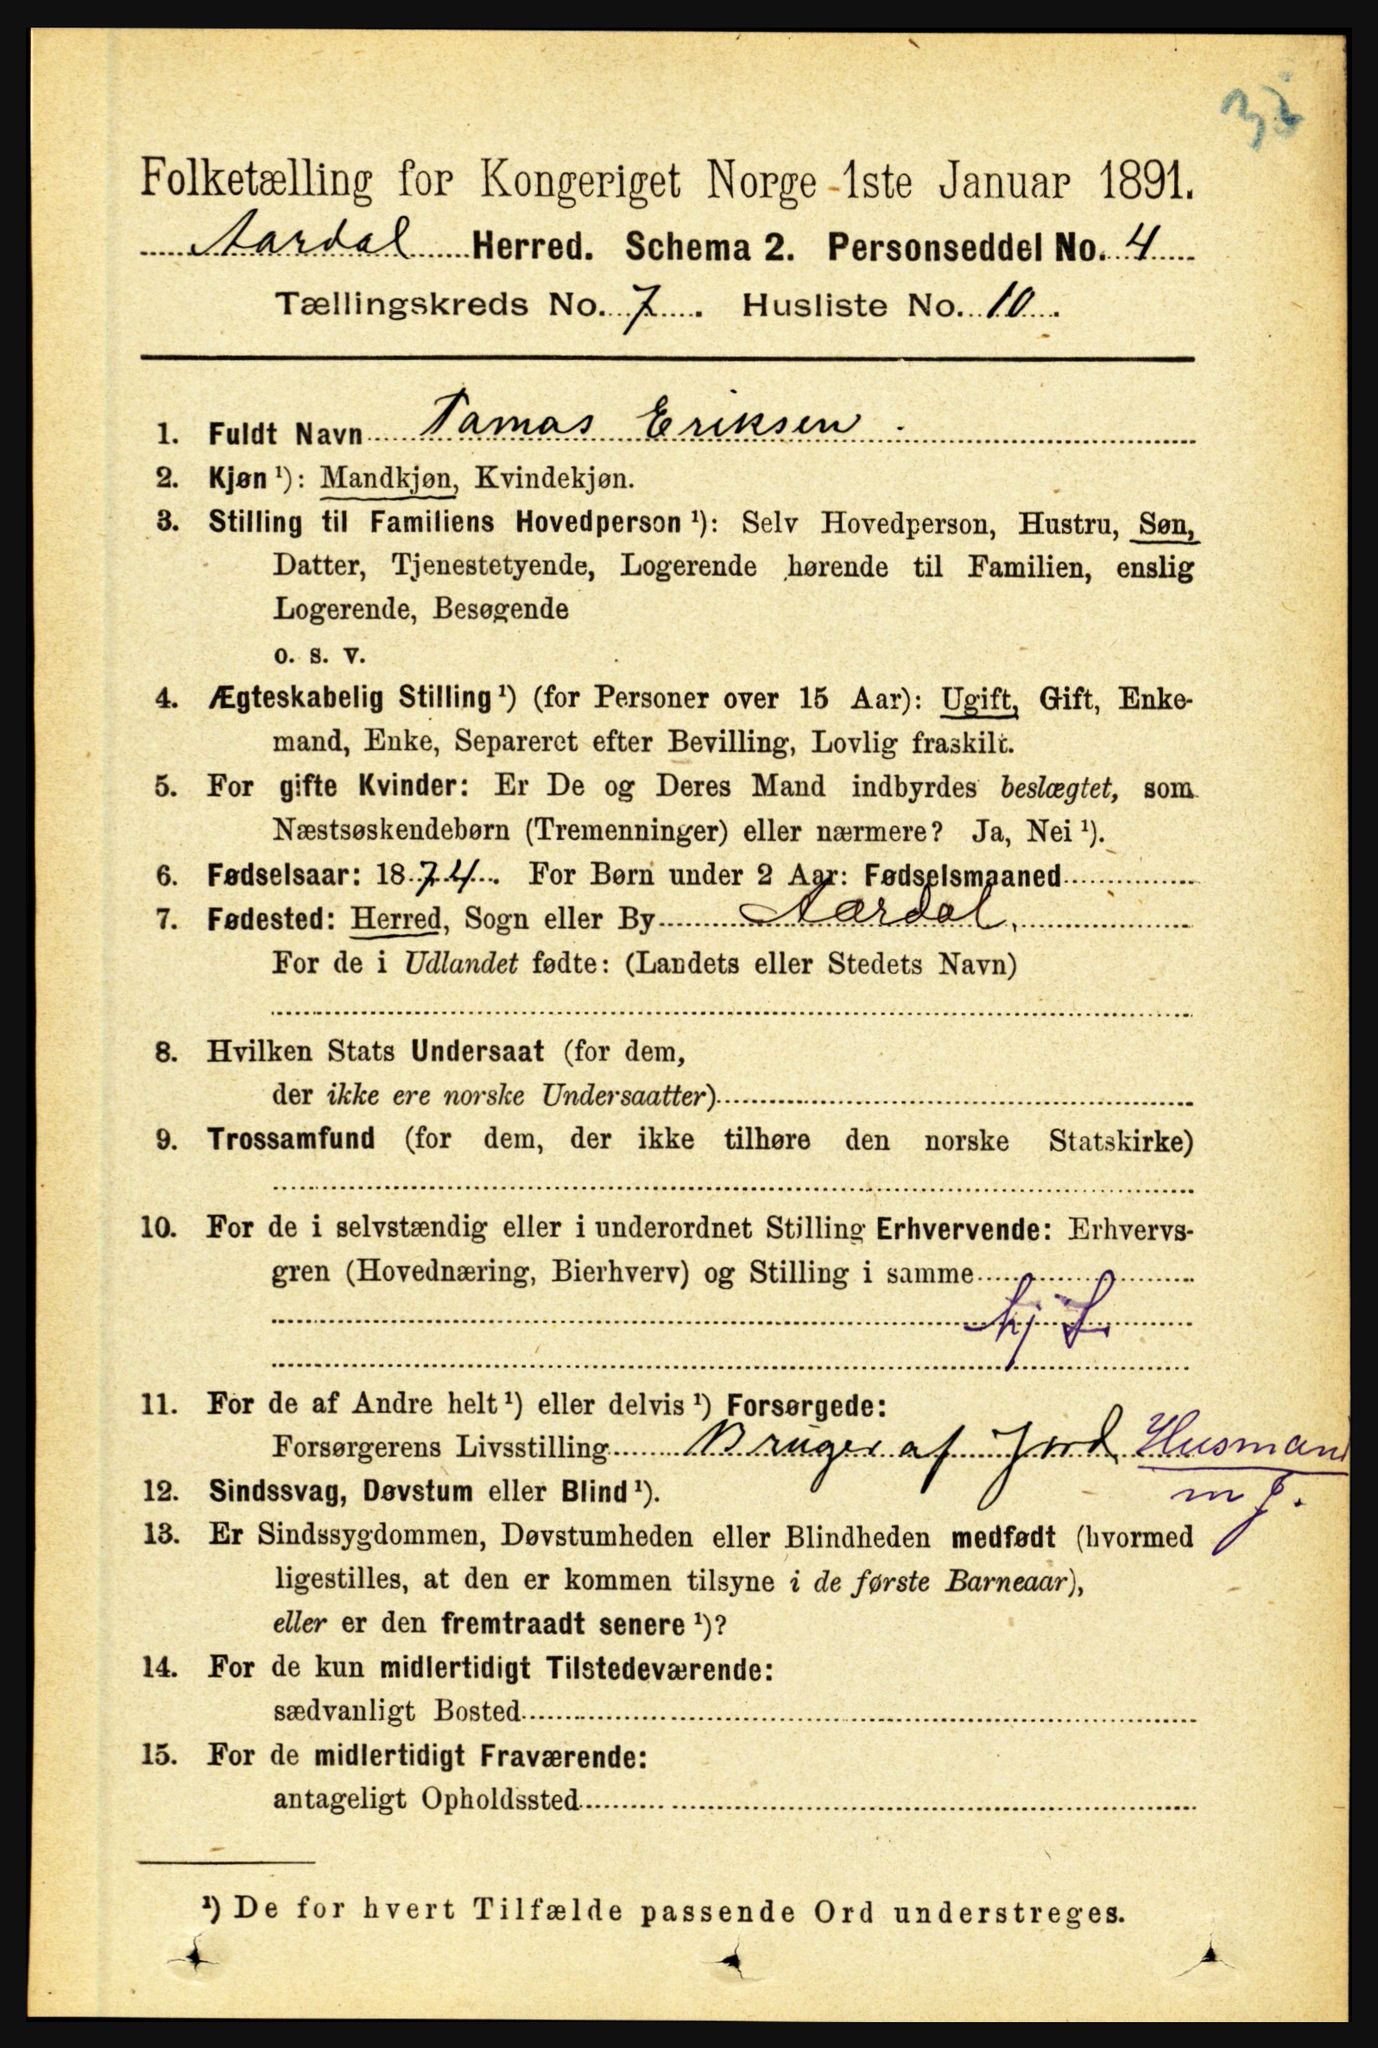 Folketælling for Kongeriget Norge 1ste Januar 1891.
Aardal Herred. Schema 2. Personseddel No. 4
Tællingskreds No. 7. Husliste No. 10.
1. Fuldt Navn Tamas Eriksen
2. Kjøn ¹): Mandkjøn, Kvindekjøn.
3. Stilling til Familiens Hovedperson ¹): Selv Hovedperson, Hustru, Søn,
Datter, Tjenestetyende, Logerende hørende til Familien, enslig
Logerende, Besøgende
o. s. v.
4. Ægteskabelig Stilling ¹) (for Personer over 15 Aar): Ugift, Gift, Enke-
mand, Enke, Separeret efter Bevilling, Lovlig fraskilt.
5. For gifte Kvinder: Er De og Deres Mand indbyrdes beslægtet, som
Næstsøskendebørn (Tremenninger) eller nærmere? Ja, Nei ¹).
6. Fødselsaar: 1874. For Børn under 2 Aar: Fødselsmaaned
7. Fødested: Herred, Sogn eller By Aardal,
For de i Udlandet fødte: (Landets eller Stedets Navn)
8. Hvilken Stats Undersaat (for dem,
der ikke ere norske Undersaatter)
9. Trossamfund (for dem, der ikke tilhøre den norske Statskirke)
10. For de i selvstændig eller i underordnet Stilling Erhvervende: Erhvervs-
gren (Hovednæring, Bierhverv) og Stilling i samme
11. For de af Andre helt ¹) eller delvis ¹) Forsørgede:
Forsørgerens Livsstilling Bruger af Jord Husmand
m J.
12. Sindssvag, Døvstum eller Blind ¹).
13. Er Sindssygdommen, Døvstumheden eller Blindheden medfødt (hvormed
ligestilles, at den er kommen tilsyne i de første Barneaar),
eller er den fremtraadt senere ¹)?
14. For de kun midlertidigt Tilstedeværende:
sædvanligt Bosted
15. For de midlertidigt Fraværende:
antageligt Opholdssted
¹) De for hvert Tilfælde passende Ord understreges.